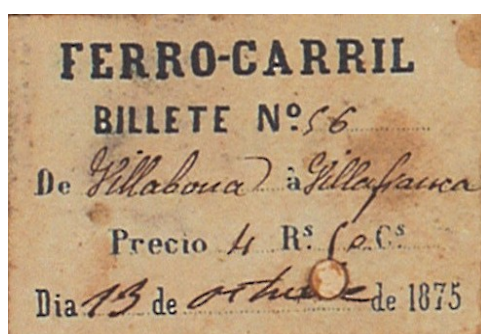 FERRO-CARRIL
BILLETE Nº 56
De Villabona à Villafranca
Precio 4 Rs Cs
Dia 13 de octubre de 1875